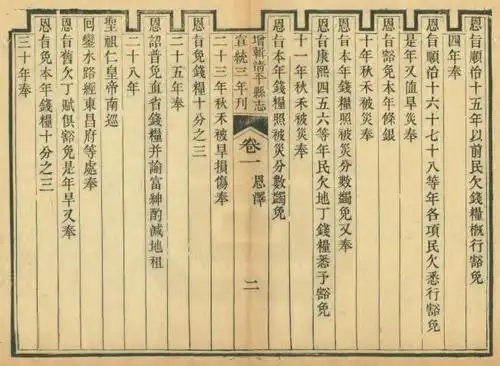 恩旨順治十五年以前民欠錢糧概行豁免
四年奉
恩旨順治十六十七十八等年各項民欠悉行豁免
是年又值旱災奉
恩旨豁免本年條銀
十年秋禾被災奉
恩旨本年錢糧照被災分數蠲免又奉
恩旨康熙四五六等年民欠地丁錢糧悉予豁免
十一年秋禾被災奉
恩旨本年錢糧照被災分數蠲免
增輯清平縣志
宣統三年刊
卷一 恩澤
二
二十三年秋禾被旱損傷奉
恩旨免錢糧十分之三
二十五年奉
恩詔普免直省錢糧并諭富紳酌減地租
二十八年
聖祖仁皇帝南巡
回鑾水路經東昌府等處奉
恩旨舊欠丁賦俱豁免是年旱又奉
恩旨免本年錢糧十分之三
三十年奉